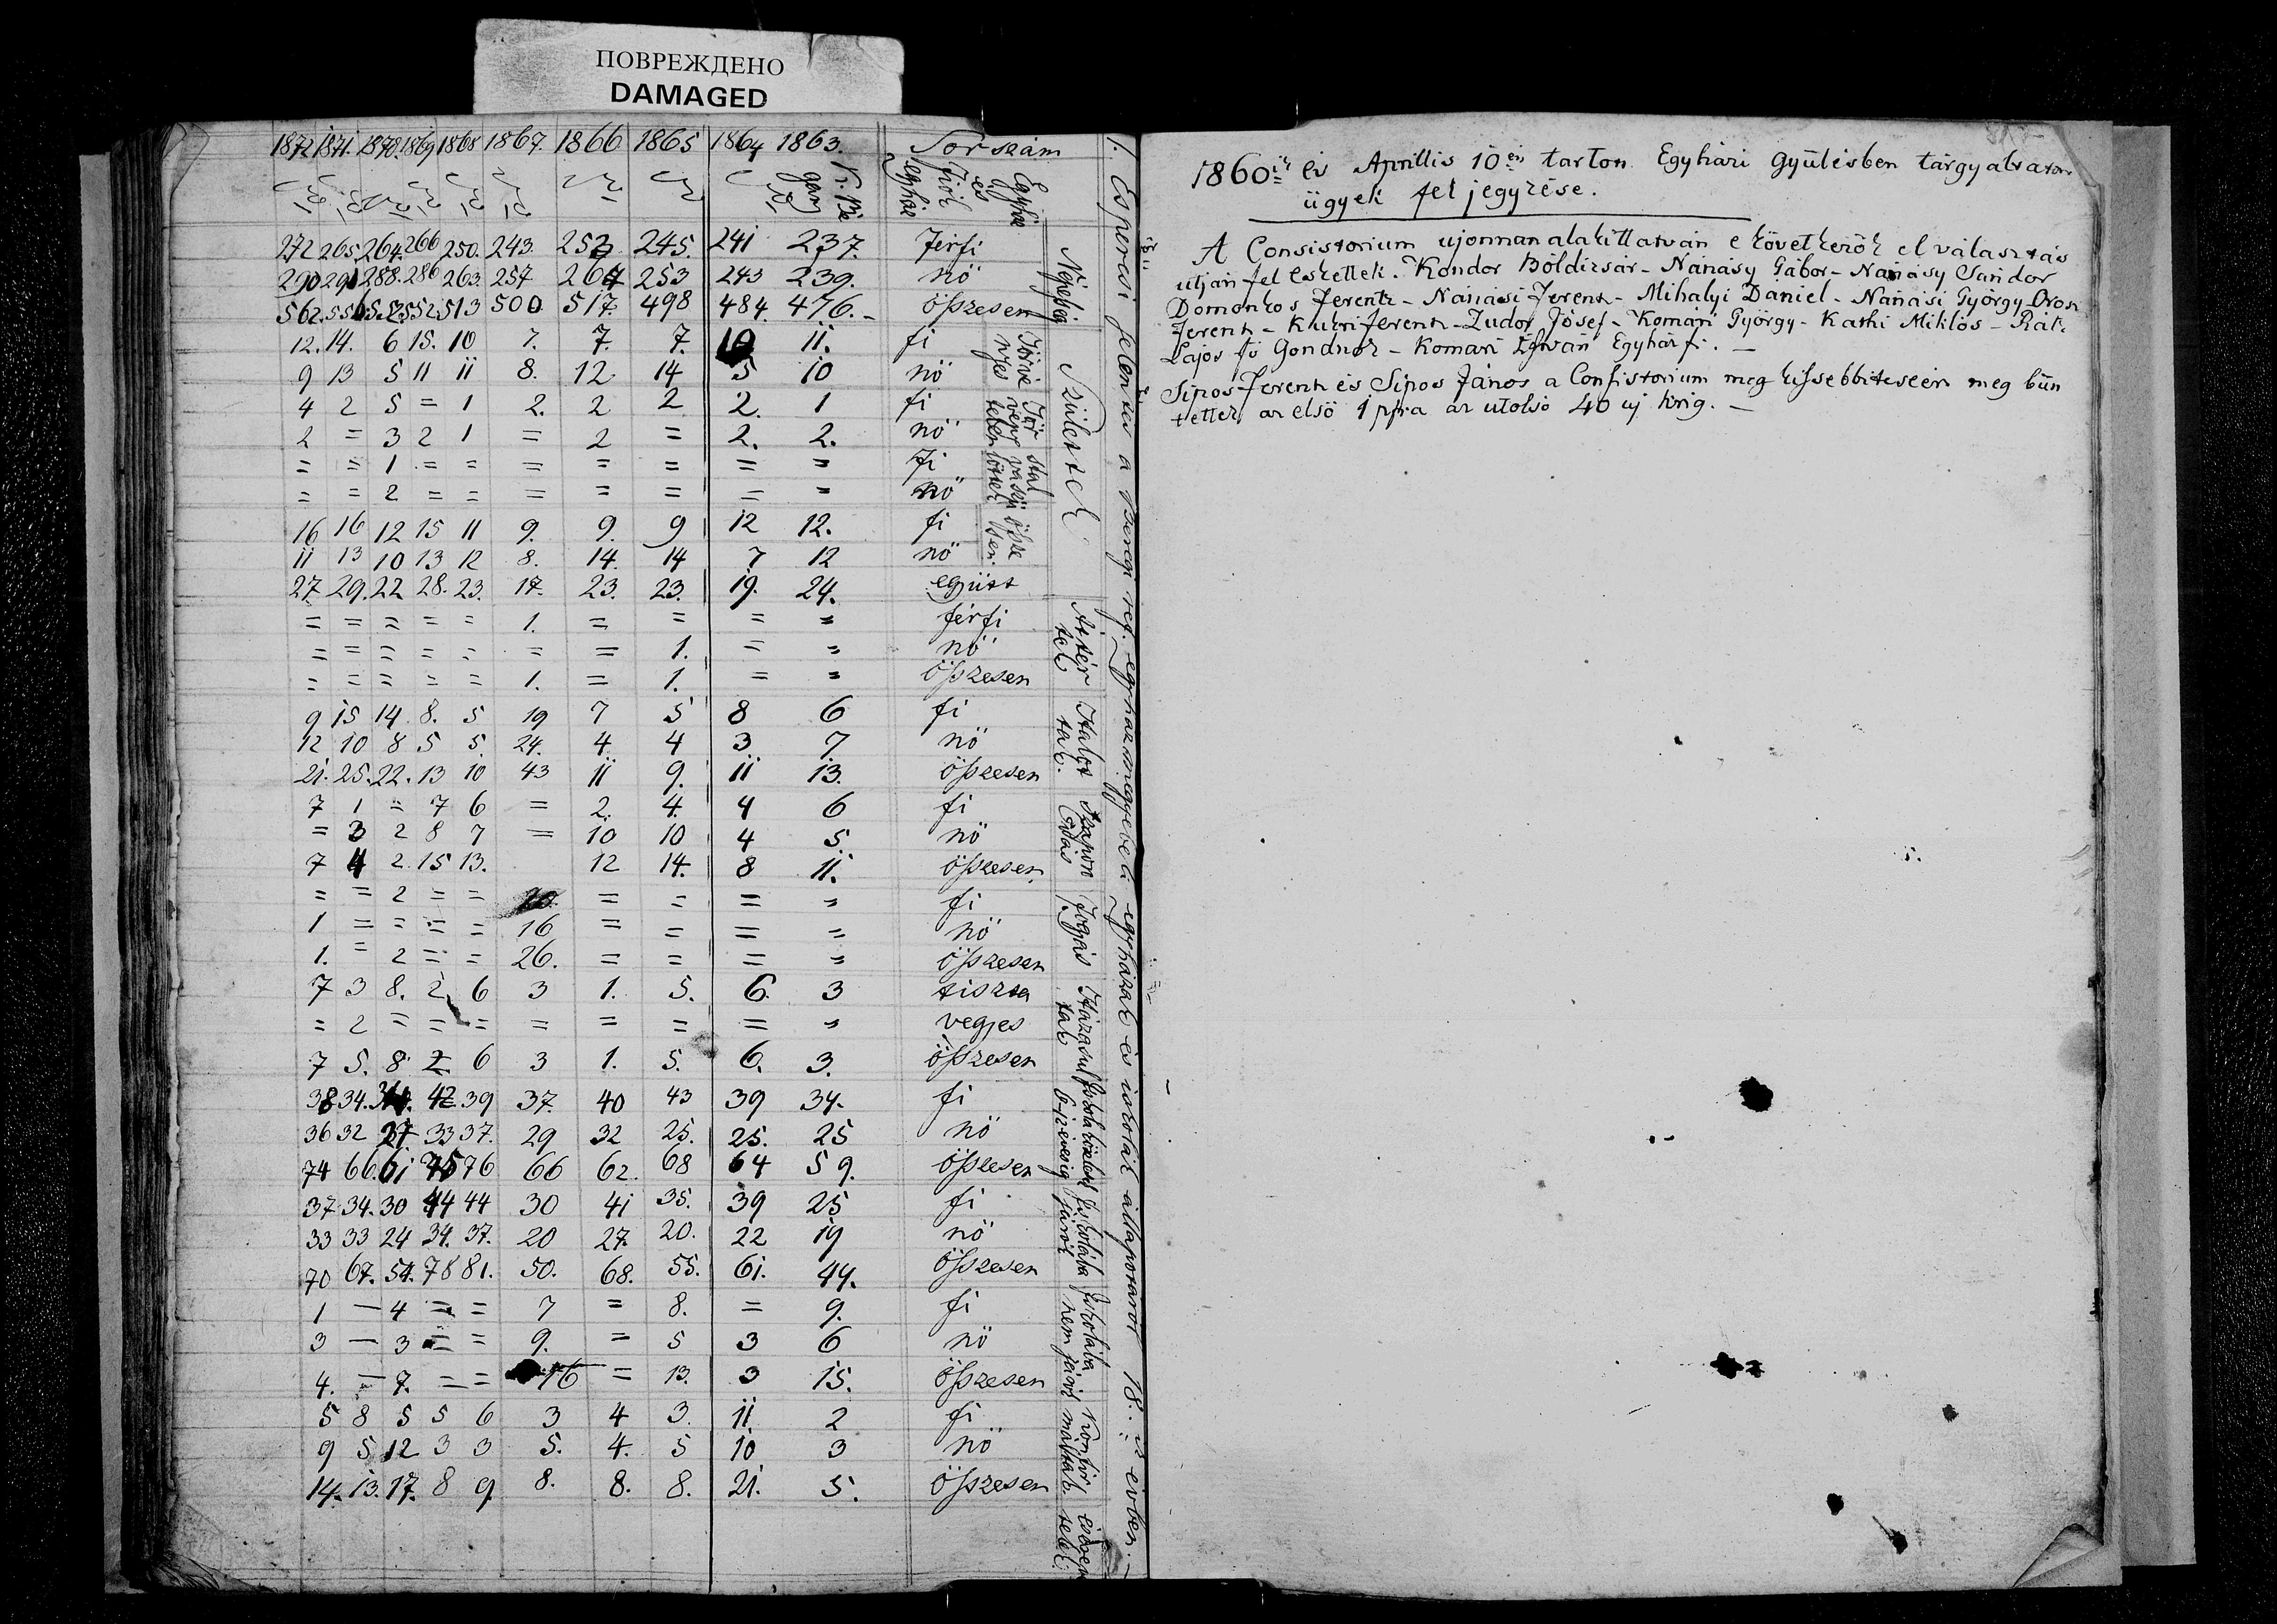 ПОВРЕЖДЕНО
DAMAGED
1872 1871. 1870. 1869 1868 1867. 1866 1865 1864 1863. Sor szám
Egyház és Fiók egyház
272 265. 264. 266 250. 243. 253 245. 241 237. férfi
290 291 288. 286 263. 257 264 253 243 239. nö
562. 556 552 552. 513 500 517. 498 484. 476. össesen
12. 14. 6 15. 10 7. 7. 7. 10 11. fi
9 13 5 11 11 8. 12 14 5 10 nö
4 2 5 = 1 2. 2 2 2. 1 fi
2 = 3 2 1 = 2 = 2. 2. nö
= = 1 = = = = = = = fi
= = 2 = = = = = = = nö
16 16 12 15 11 9. 9. 9 12 12. fi
11 13 10 13 12 8. 14. 14 7 12 nö
27 29. 22 28. 23. 17. 23. 23. 19. 24. együtt
= = = = = 1. = = = = férfi
= = = = = = = 1. = = nö
= = = = = 1. = 1. = = összesen
9 15 14. 8. 5 19 7 5 8 6 fi
12 10 8 5 5. 24. 4. 4 3 7. nö
21. 25. 22. 13 10 43 11 9. 11 13. összesen
7 1 = 7 6 = 2. 4. 4 6 fi
= 3 2 8 7 = 10 10 4 5. nö
7 4 2. 15 13. 12 14. 8 11. összesen
= = 2 = = 20. = = = = fi
1 = = = = 16 = = = = nö
1. = 2 = = 26. = = = = összesen
7 3 8. 2 6 3 1. 5. 6. 3 tiszta
= 2 = = = = = = = = vegyes
7 5. 8 2 6 3 1. 5. 6. 3. összesen
38 34. 34. 42 39 37. 40 43 39 34. fi
36 32 27 33 37. 29 32 25. 25. 25 nö
74 66. 61 75 76 66 62. 68 64 59. összesen
37 34. 30 44 44 30 41 35. 39 25 fi
33 33 24 34. 37. 20 27. 20. 22 19 nö
70 67. 54. 78 81. 50. 68. 55. 61. 44. összesen
1 — 4 = = 7 = 8. = 9. fi
3 — 3 = = 9. = 5 3 6 nö
4. — 7. = = 16 = 13. 3 15. összesen
5 8 5 5 6 3 4 3. 11. 2 fi
9 5 12 3 3 5. 4. 5 10 3 nö
14. 13. 17. 8 9 8. 8. 8. 21. 5. összesen
Népesség
Születtek
Törvényes
Törvénytelen
Összesen
Áttértek
Haltak
Szaporodás
Fogyás
Házasultak
6-12 évesig
Iskolába járók
Iskolába nem járók
Konfirmáltak
1. Esperesi jelentés a Beregi ref. egyházmegyebeli egyházak és iskolák állapotáról 18.. évben. —
1860ik év Aprillis 10én tarton Egyházi Gyülésben tárgyaltatott
ügyek fel jegyzése.
A Consistorium ujonnan alakittatván e következök el választás
utján fel eskettek. Kondor Boldizsár - Nánásy Gábor - Nánásy Sandor
Domonkos Ferentz - Nánási Ferentz - Mihalyi Dániel - Nánási György - Oros
Ferentz - Kukri Ferentz - Zudor Jósef - Komári György - Kathi Miklós - Rátz
Lajos fö Gondnok - Komari Istwán Egyház fi. —
Sipos Ferentz és Sipos János a Consistorium meg kissebbiteséért meg bün
tettek az elsö 1 pfra az utolsó 40 uj krig. —